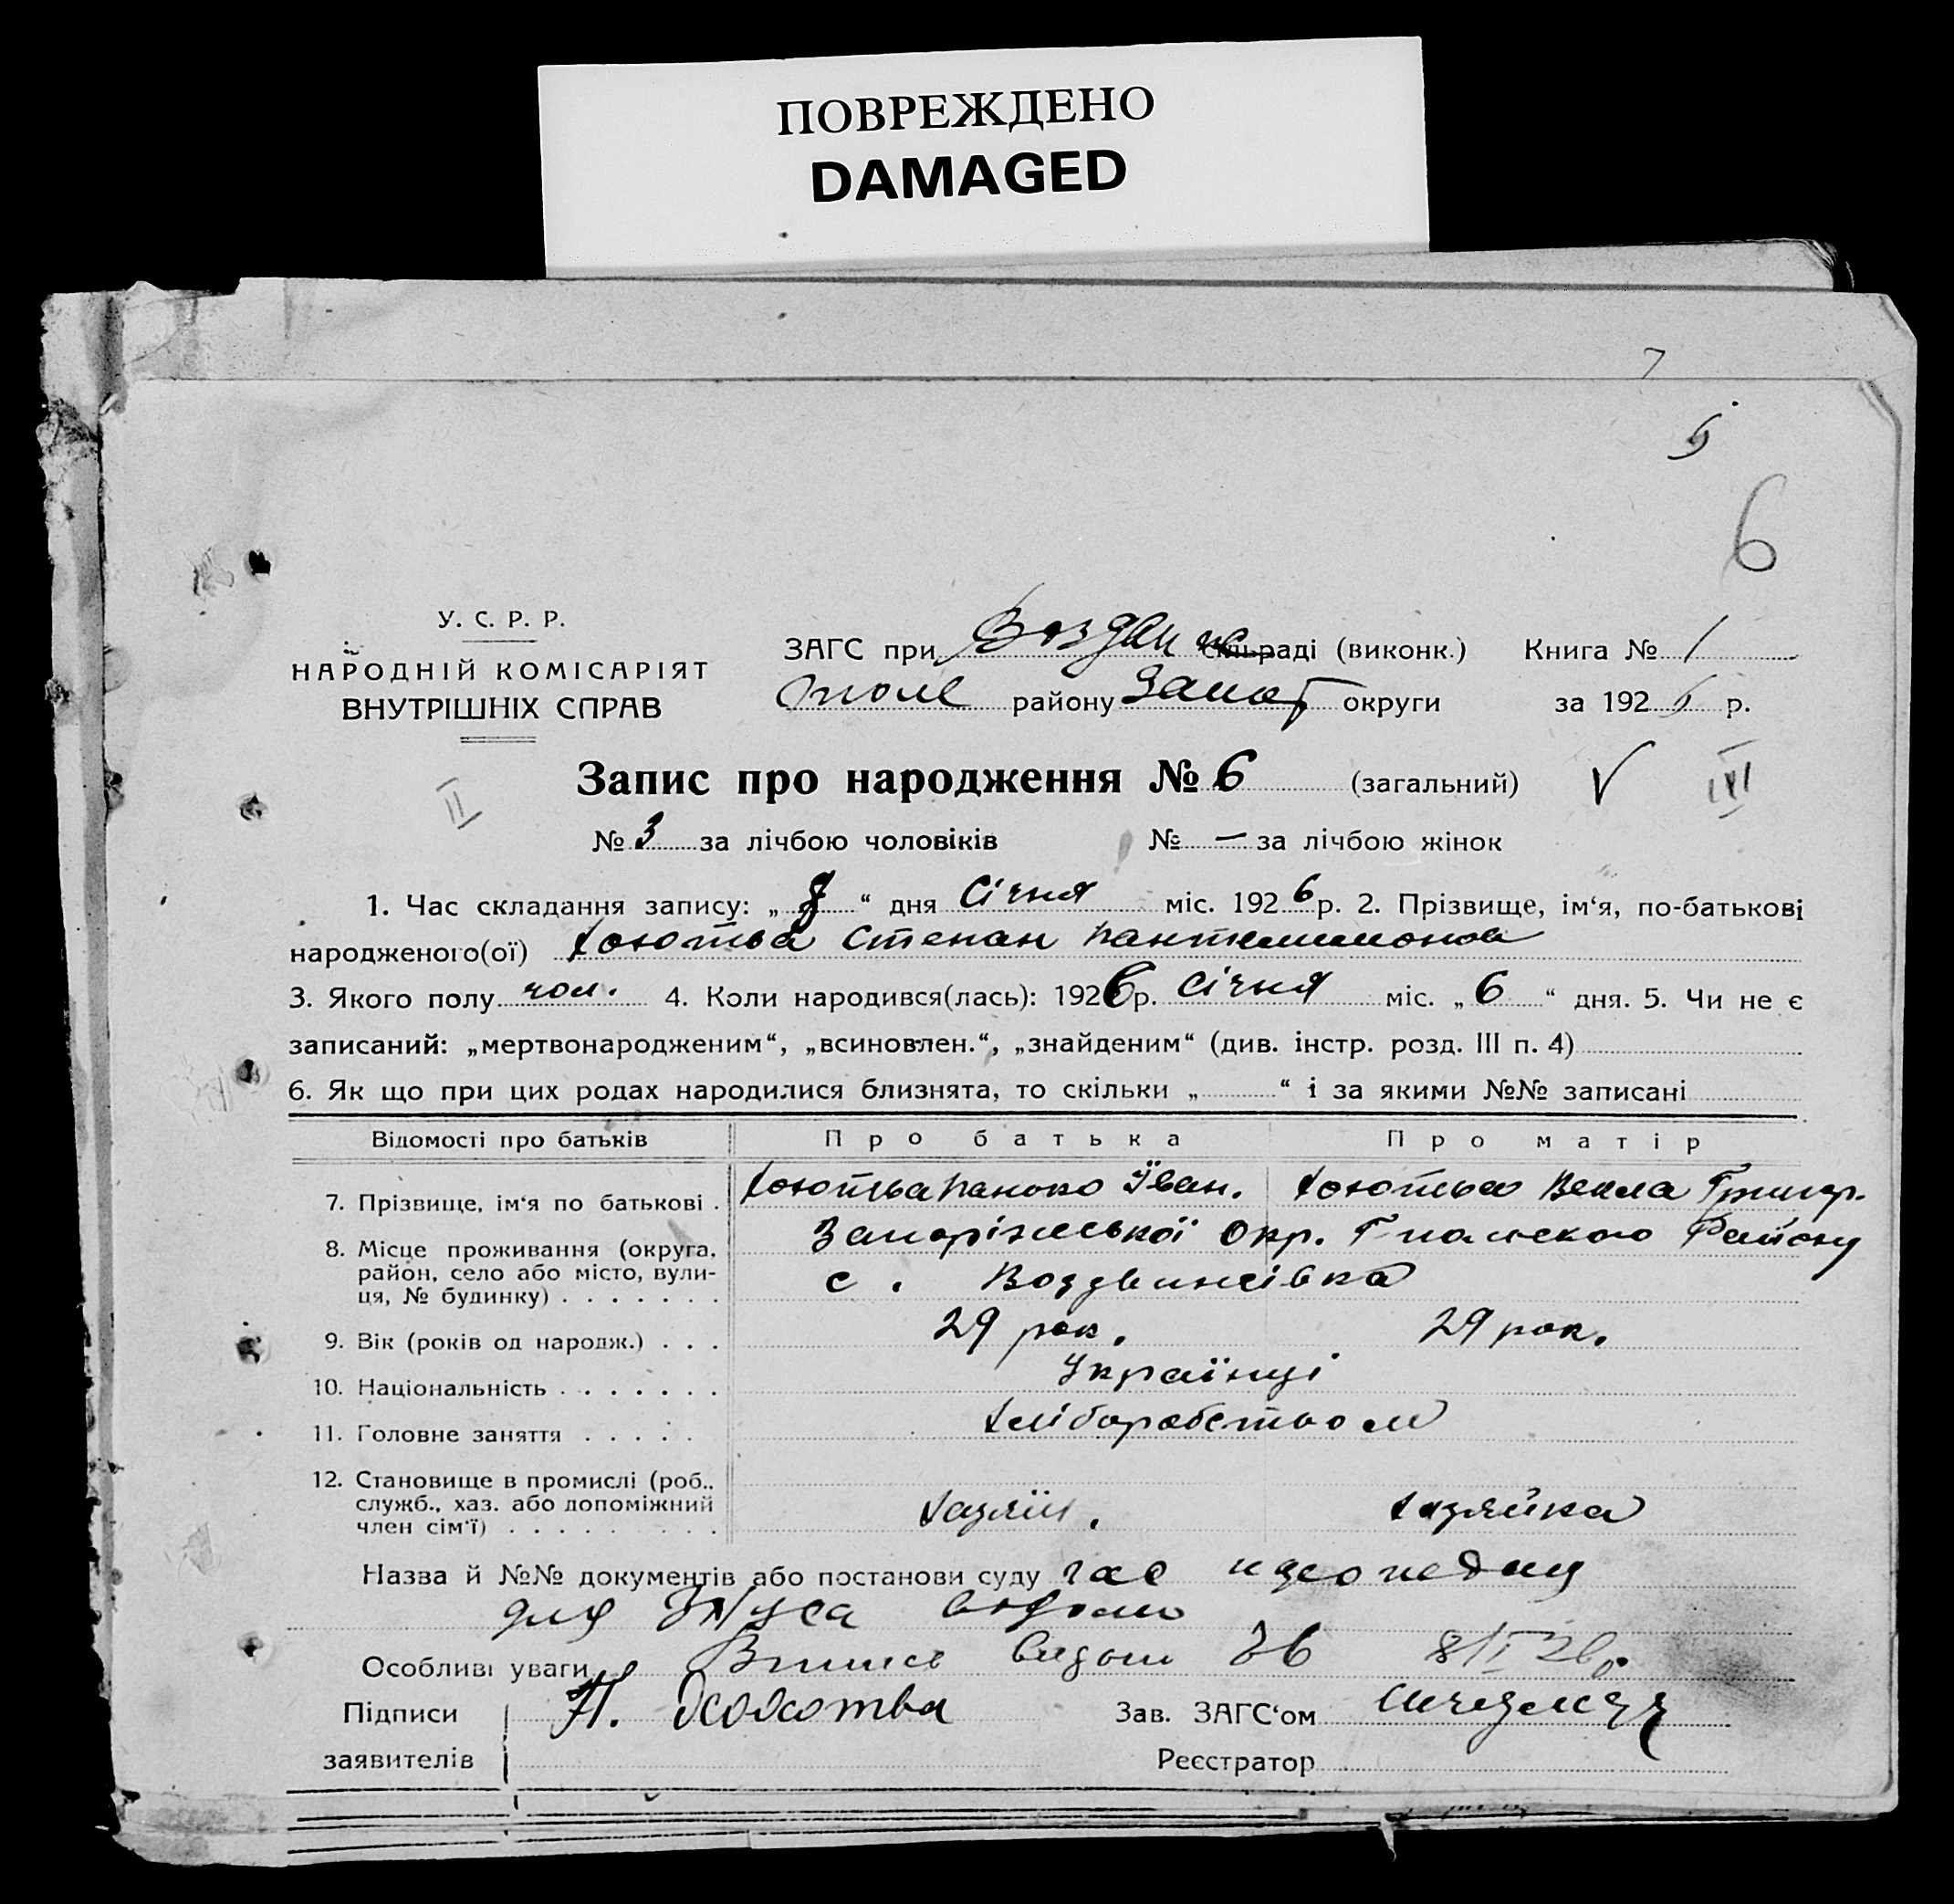 ПОВРЕЖДЕНО
DAMAGED
7
6
У. С. Р. Р.
НАРОДНІЙ КОМІСАРІЯТ
ВНУТРІШНІХ СПРАВ
ЗАГС при Воздви сільраді (виконк.) Книга № 1
району Запор округи за 192 6 р.
Запис про народження № 6 (загальний) V III
II
№ 3 за лічбою чоловіків № — за лічбою жінок
1. Час складання запису: „ “ дня Січня міс. 192 6 р. 2. Прізвище, ім‘я, по-батькові
народженого(ої) Хоютва Степан Пантелимонов
3. Якого полу чол. 4. Коли народився(лась): 192 6 р. Січня міс. „ 6 “ дня. 5. Чи не є
записаний: „мертвонародженим“, „всиновлен.“, „знайденим“ (див. інстр. розд. III п. 4)
6. Як що при цих родах народилися близнята, то скільки „ “ і за якими №№ записані
Відомості про батьків Про батька Про матір
7. Прізвище, ім‘я по батькові . Хоютва Панько Іван. Хоютва Векла Григор.
8. Місце проживання (округа, район, село або місто, вули-ця, № будинку) . . . . . . . Запоріжської Окр. Району
с. Воздвижівка
9. Вік (років од народж.) . . . 29 рок. 29 рок.
10. Національність . . . . . . . Українці
11. Головне заняття . . . . . Хліборобством
12. Становище в промислі (роб.,
служб., хаз. або допоміжний
член сім‘ї) . . . . . . . . . Хазяїн. Хазяйка
Назва й №№ документів або постанови суду
для
Особливі уваги Випись видан 8/I 26 р.
Підписи П. Хоютва Зав. ЗАГС‘ом
заявителів Реєстратор